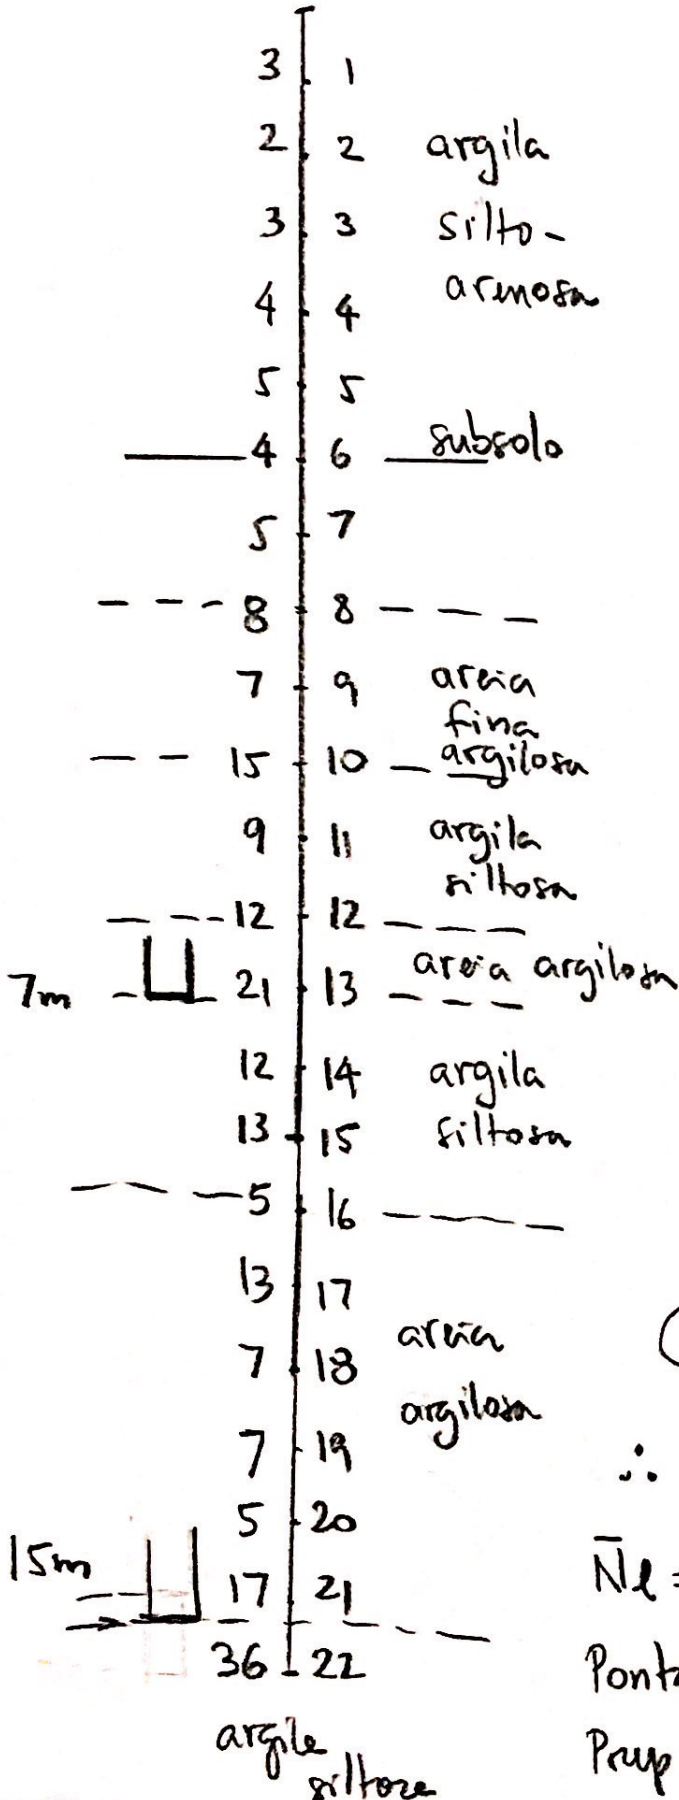 3 1
2 2 argila
3 3 silto-
4 4 arenosa
5 5
4 6 subsolo
5 7
8 8
7 9 areia
fina
15 10 argilosa
9 11 argila
siltosa
12 12
7m 21 13 areia argilosa
12 14 argila
13 15 siltosa
5 16
13 17
7 18 areia
argilosa
7 19
∴
5 20
15m 17 21 N̄l =
36 22 Ponta
argila Prup
siltosa